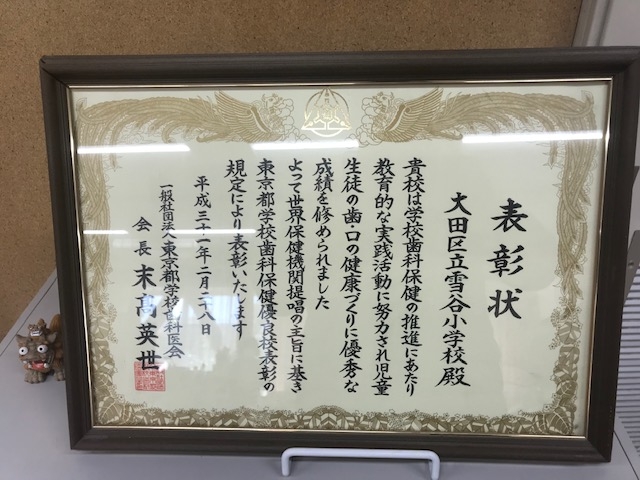 表彰状
大田区立雪谷小学校殿
貴校は学校歯科保健の推進にあたり
教育的な実践活動に努力され児童
生徒の歯・口の健康づくりに優秀な
成績を修められました
よって世界保健機関提唱の主旨に基き
東京都学校歯科保健優良校表彰の
規定により表彰いたします
平成三十一年二月二八日
一般社団法人東京都学校歯科医会
会長 末高英世